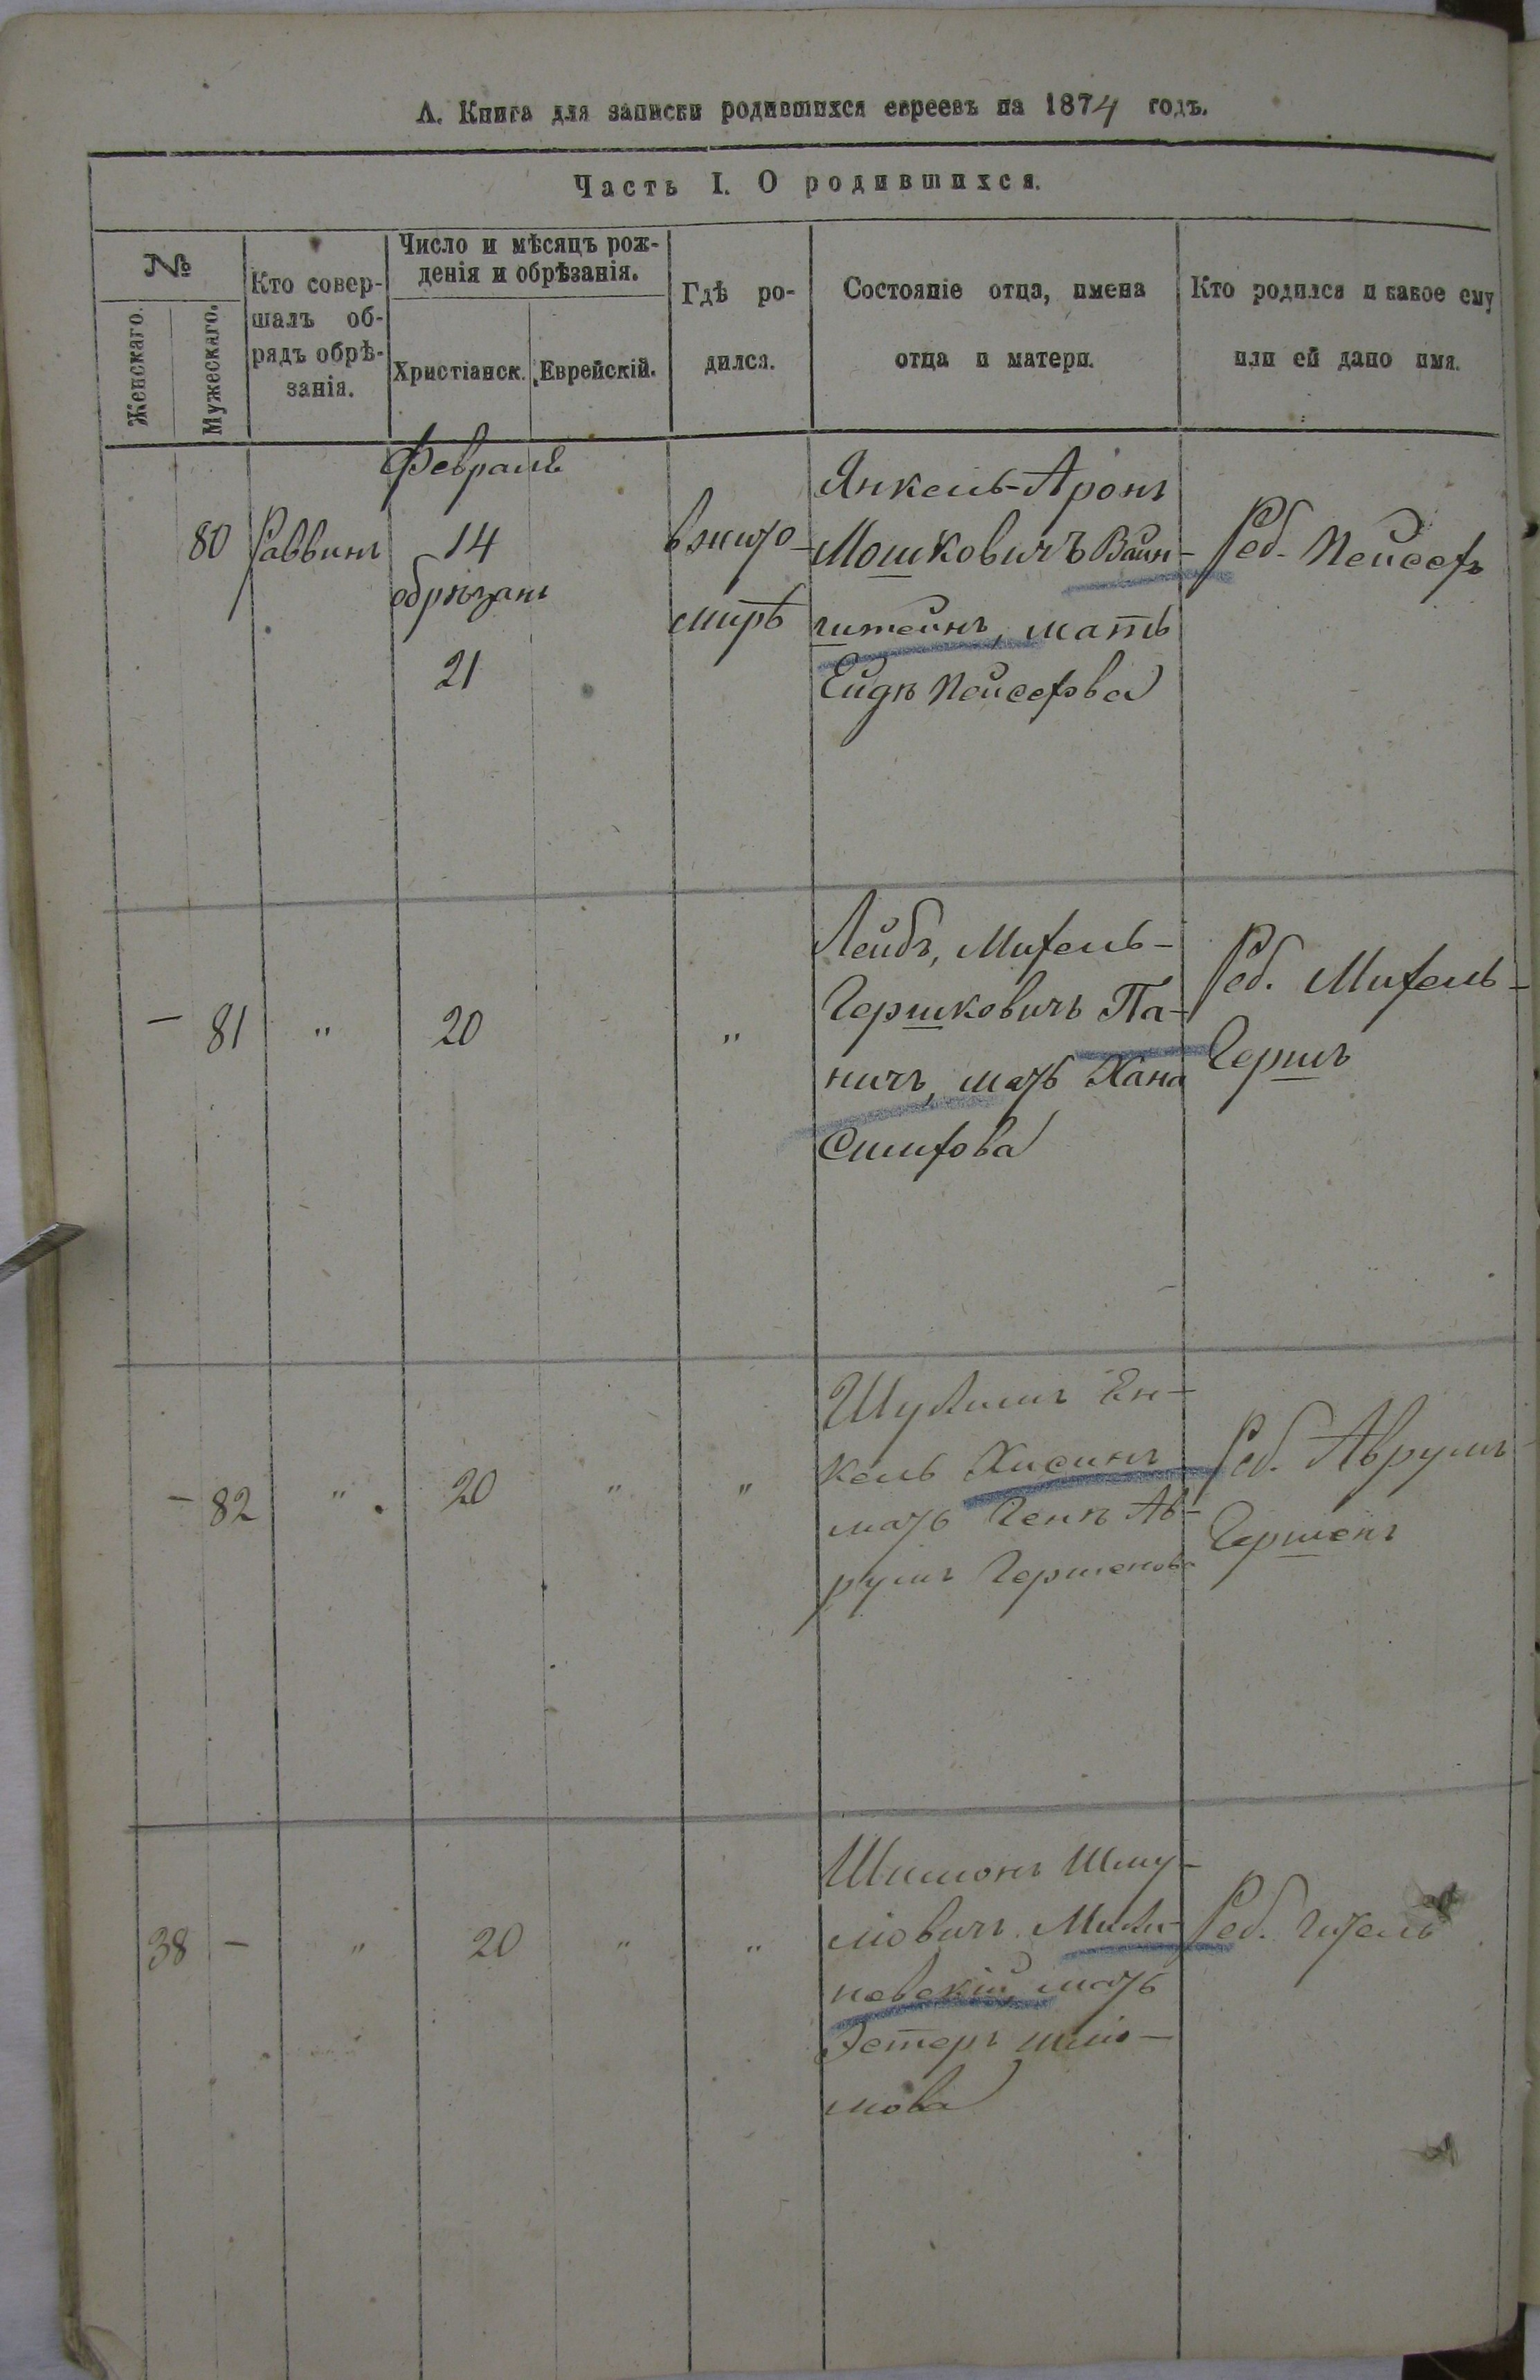 А. Книга для записки родившихся евреевъ на 1874 годъ.
Часть I. О родившихся.
№
Женскаго.
Мужескаго.
Кто совер-
шалъ об-
рядъ обрѣ-
занія.
Число и мѣсяцъ рож-
денія и обрѣзанія.
Христіанск.
Еврейскій.
Гдѣ ро-
дился.
Состояніе отца, имена
отца и матери.
Кто родился и какое ему
или ей дано имя.
80
Раввинъ
Февраль
14
обрѣзанъ
21
в жито-
мирѣ
Янкель-Аронъ
Мошковичъ Вайн-
штейнъ, мать
Ейдѣ Пейсехова
Реб. Пейсехъ
—
81
"
20
"
Лейбъ, Михель-
Гершковичъ Па-
ничъ, мать Хана
Симхова
Реб. Михель-
Гершъ
—
82
"
20
"
"
Шулимъ Ен-
кель Хисинъ
мать Генѣ Ав-
румъ Гершенова
Реб. Аврумъ
Гершенъ
38
—
"
20
"
"
Шимонъ Шму-
ловичъ
мать
Эстеръ Шлио-
мова
Реб. Гитель